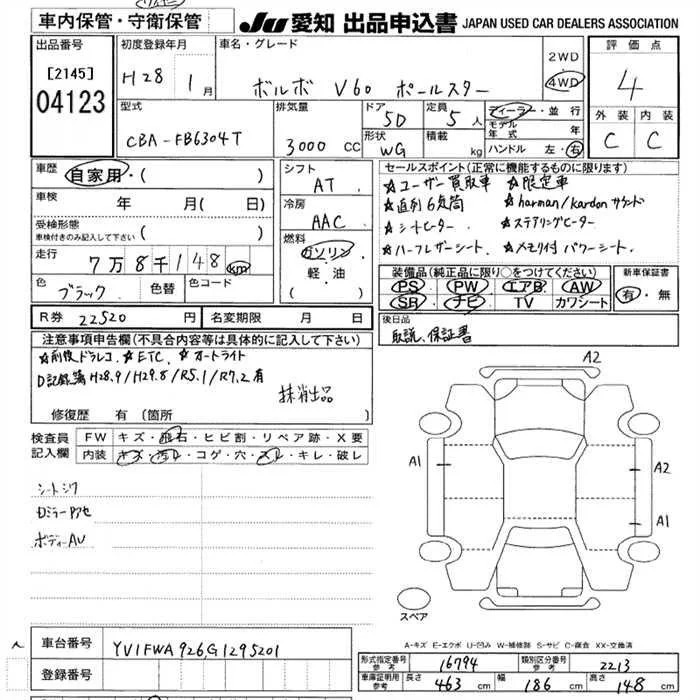 車内保管・守衛保管
JU 愛知 出品申込書 JAPAN USED CAR DEALERS ASSOCIATION
出品番号
[2145]
04123
初度登録年月
H28 1月
車名・グレード
ボルボ V60 ポールスター
2WD
4WD
評価点
4
外装 内装
C C
型式
CBA-FB6304T
排気量
3000 CC
ドア
5D
形状
WG
定員
5人
積載
kg
ディーラー・並行
モデル年式 年
ハンドル 左・右
車歴
自家用・( )
車検 年 月( 日)
受検形態
車検付きのみ記入して下さい ( )
走行
7万8千148km
色
ブラック
色替
色コード
シフト
AT
冷房
AAC
燃料
ガソリン
軽・油
( )
セールスポイント(正常に機能するものに限ります)
☆ユーザー買取車 ☆限定車
☆直列6気筒 ☆harman/kardonサウンド
☆シートヒーター ☆ステアリングヒーター
☆ハーフレザーシート ☆メモリ付パワーシート
装備品(純正品に限り○をつけてください)
PS PW エアB AW
SR ナビ TV カワシート
新車保証書
有・無
R券 22520 円
名変期限 月 日
後日品
取説、保証書
注意事項申告欄(不具合内容等は具体的に記入して下さい)
☆前後ドラレコ ☆ETC ☆オートライト
D記録簿 H28.9/H29.8/R5.1/R7.2有
抹消出品
修復歴 有(箇所 )
検査員記入欄
FW キズ・飛石・ヒビ割・リペア跡・X要
内装 キズ・汚レ・コゲ・穴・スレ・キレ・破レ
シートシワ
ドミラーPアセ
ボディーAU
A2
A1
A2
A1
スペア
A-キズ E-エクボ U-凹み W-補修跡 S-サビ C-腐食 XX-交換済
車台番号
YV1FWA926G1295201
登録番号
型式指定番号 参考 16794
類別区分番号 参考 2213
車庫証明用 参考 長さ 463cm 幅 186cm 高さ 148cm